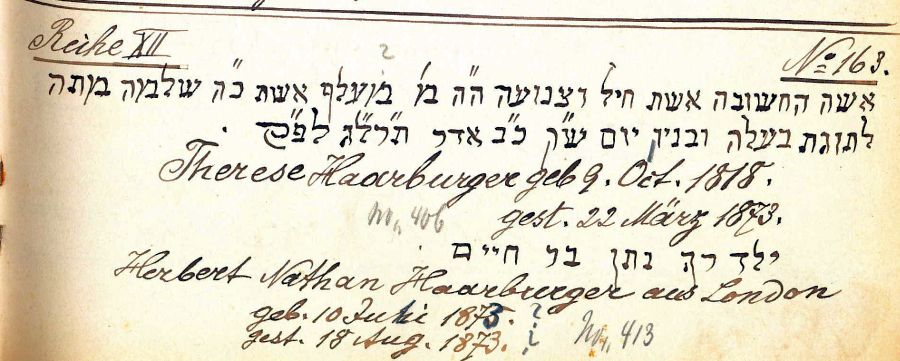 Reihe XII
No 163.
אשה החשובה אשת חיל וצנועה ה"ה מ' אשת כ"ה שלמה במתה
לתוגת בעלה ובניו יום ש"ק כ"ב אדר תרל"ג לפ"ק
Therese Haarburger geb 9. Oct. 1818.
gest. 22 März 1873.
No. 406
ילד רך נתן בר חיים
Herbert Nathan Haarburger aus London
geb. 10 Julie 1873. ?
gest. 18 Aug. 1873. ?
No. 413